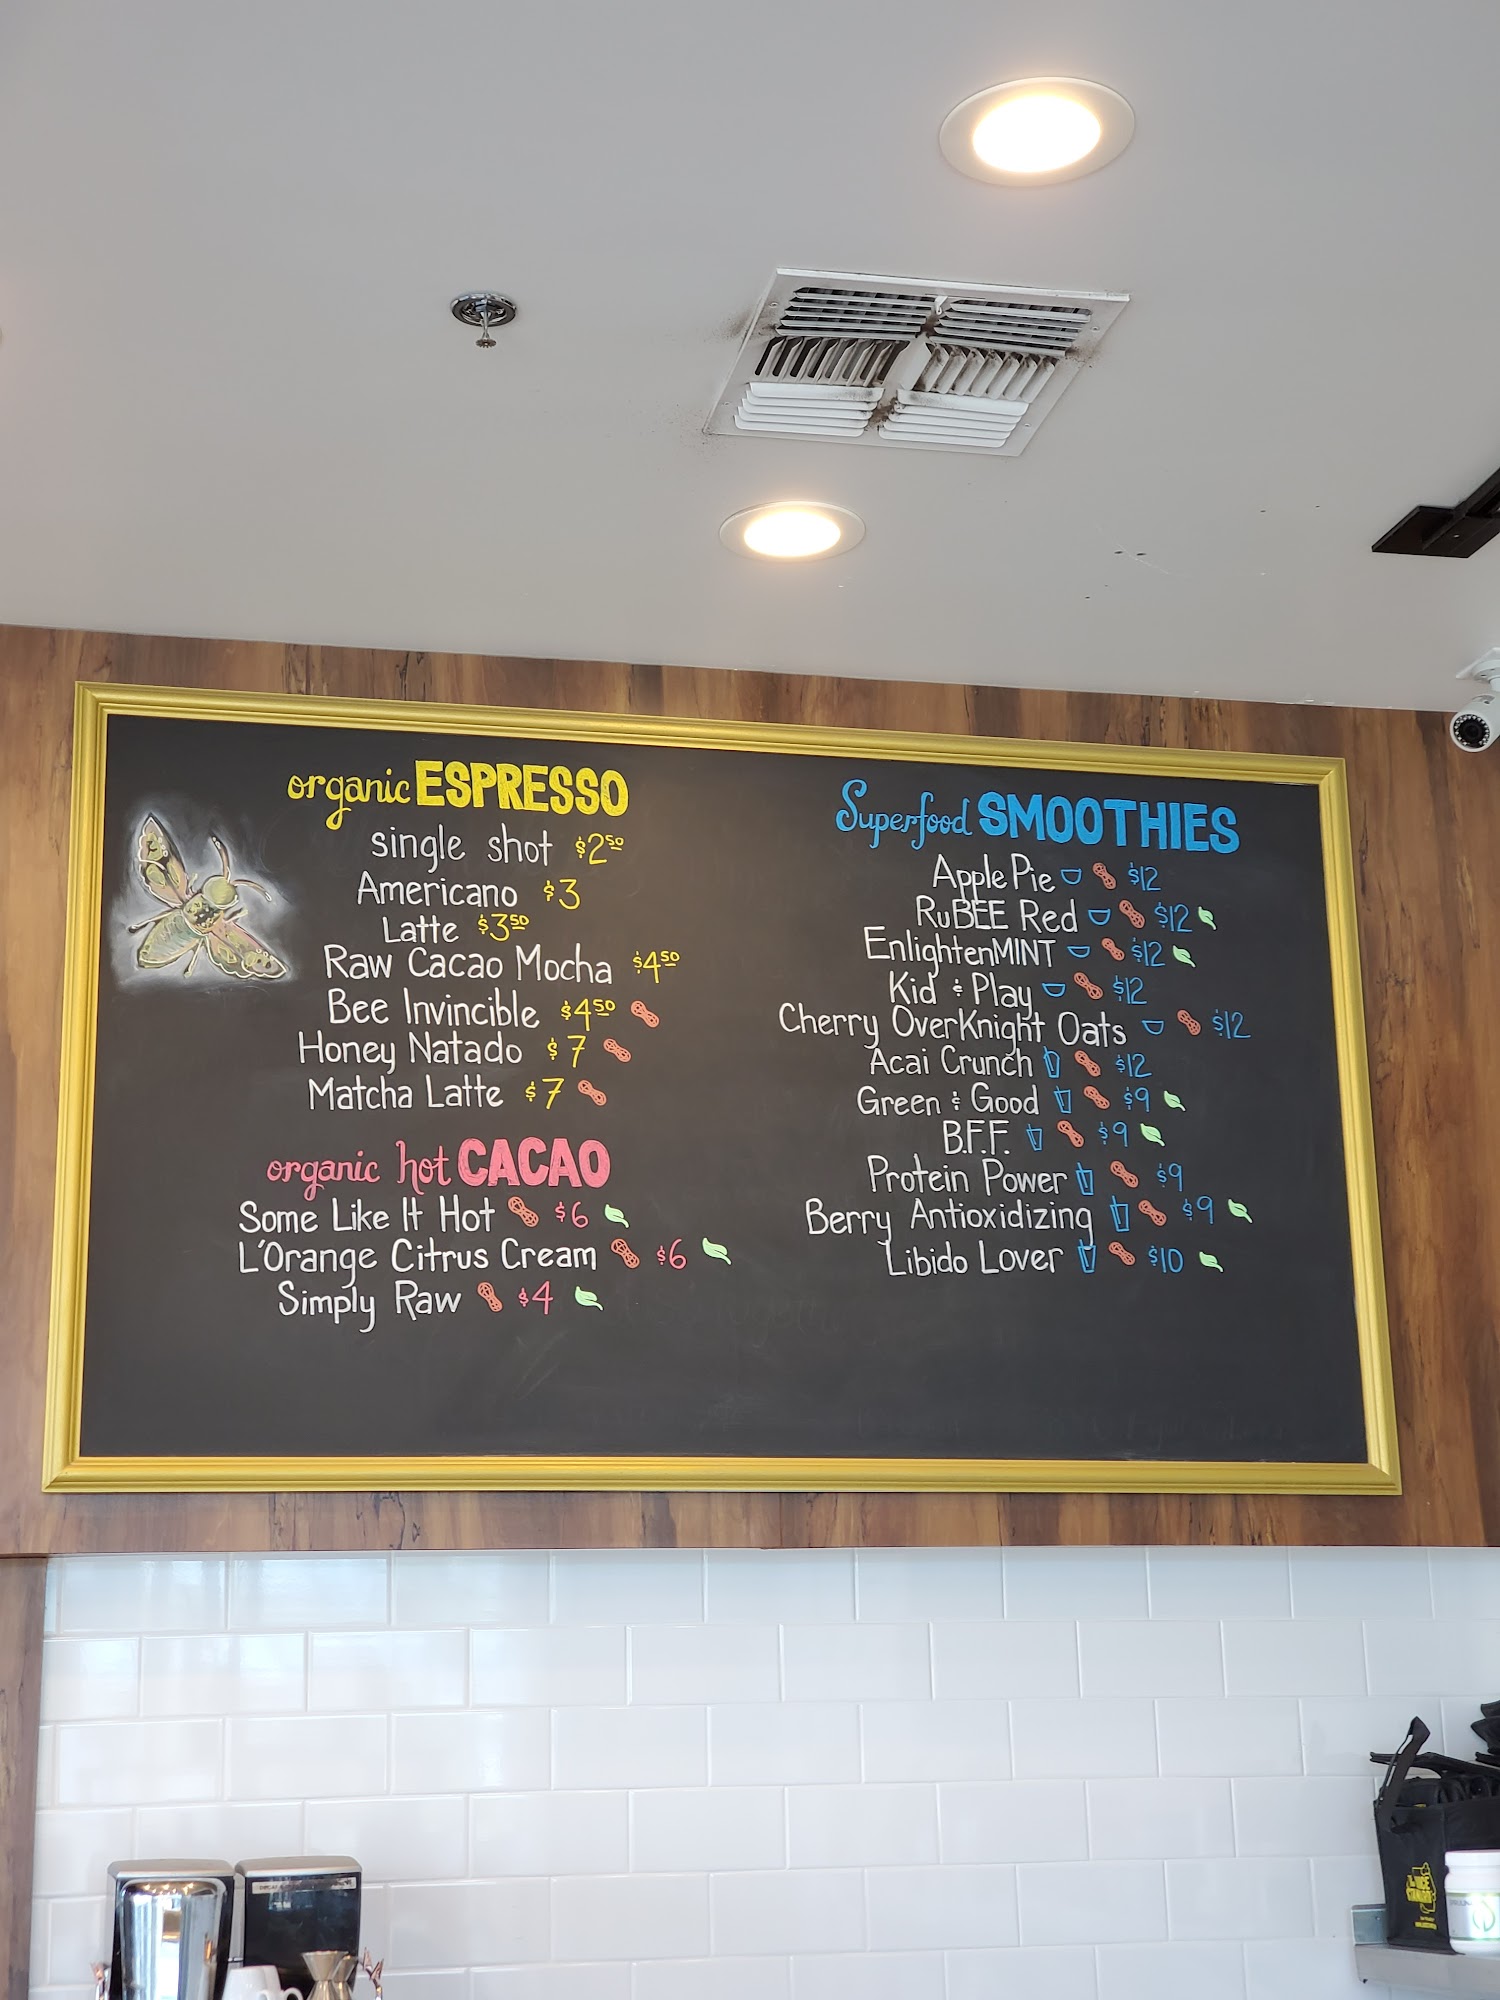 organic ESPRESSO
single shot $2⁵⁰
Americano $3
Latte $3⁵⁰
Raw Cacao Mocha $4⁵⁰
Bee Invincible $4⁵⁰
Honey Natado $7
Matcha Latte $7
organic hot CACAO
Some Like It Hot $6
L'Orange Citrus Cream $6
Simply Raw $4
Superfood SMOOTHIES
Apple Pie $12
RuBEE Red $12
EnlightenMINT $12
Kid & Play $12
Cherry OverKnight Oats $12
Acai Crunch $12
Green & Good $9
B.F.F. $9
Protein Power $9
Berry Antioxidizing $9
Libido Lover $10